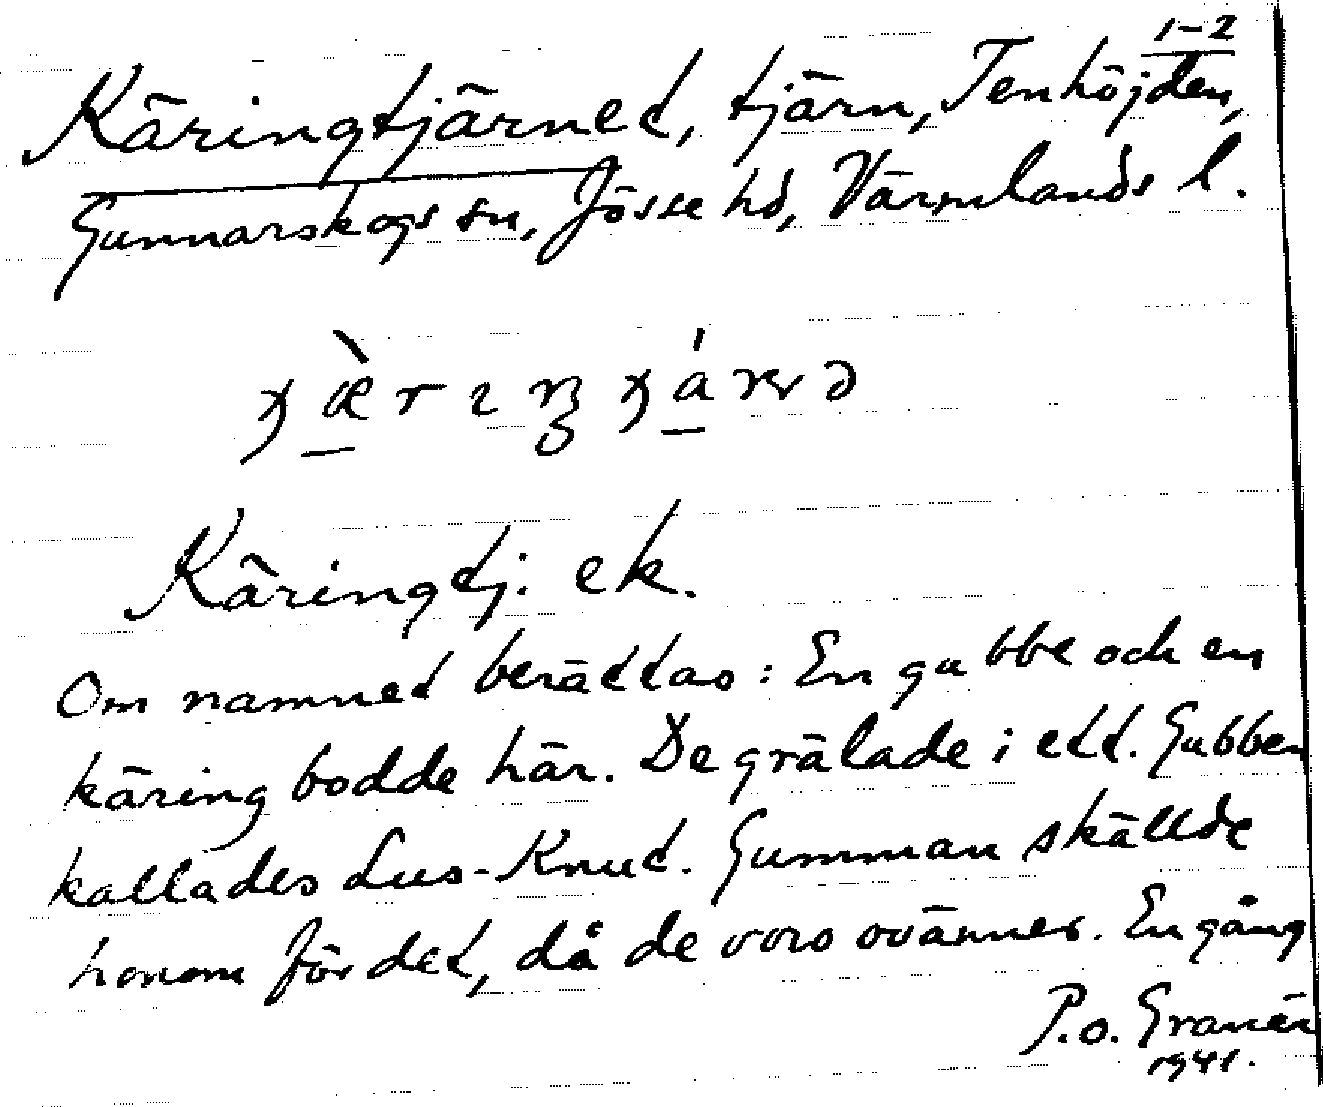 1-2
Käringtjärnet, tjärn, Tenhöjden,
Gunnarskogs sn, Jösse hd, Värmlands l.
Käringtj. ek.
Om namnet berättas: En gubbe och en
käring bodde här. De grälade i ett. Gubben
kallades Lus-Knut. Gumman skällde
honom för det, då de voro ovänner. En gång
P.o. Granér
1941.